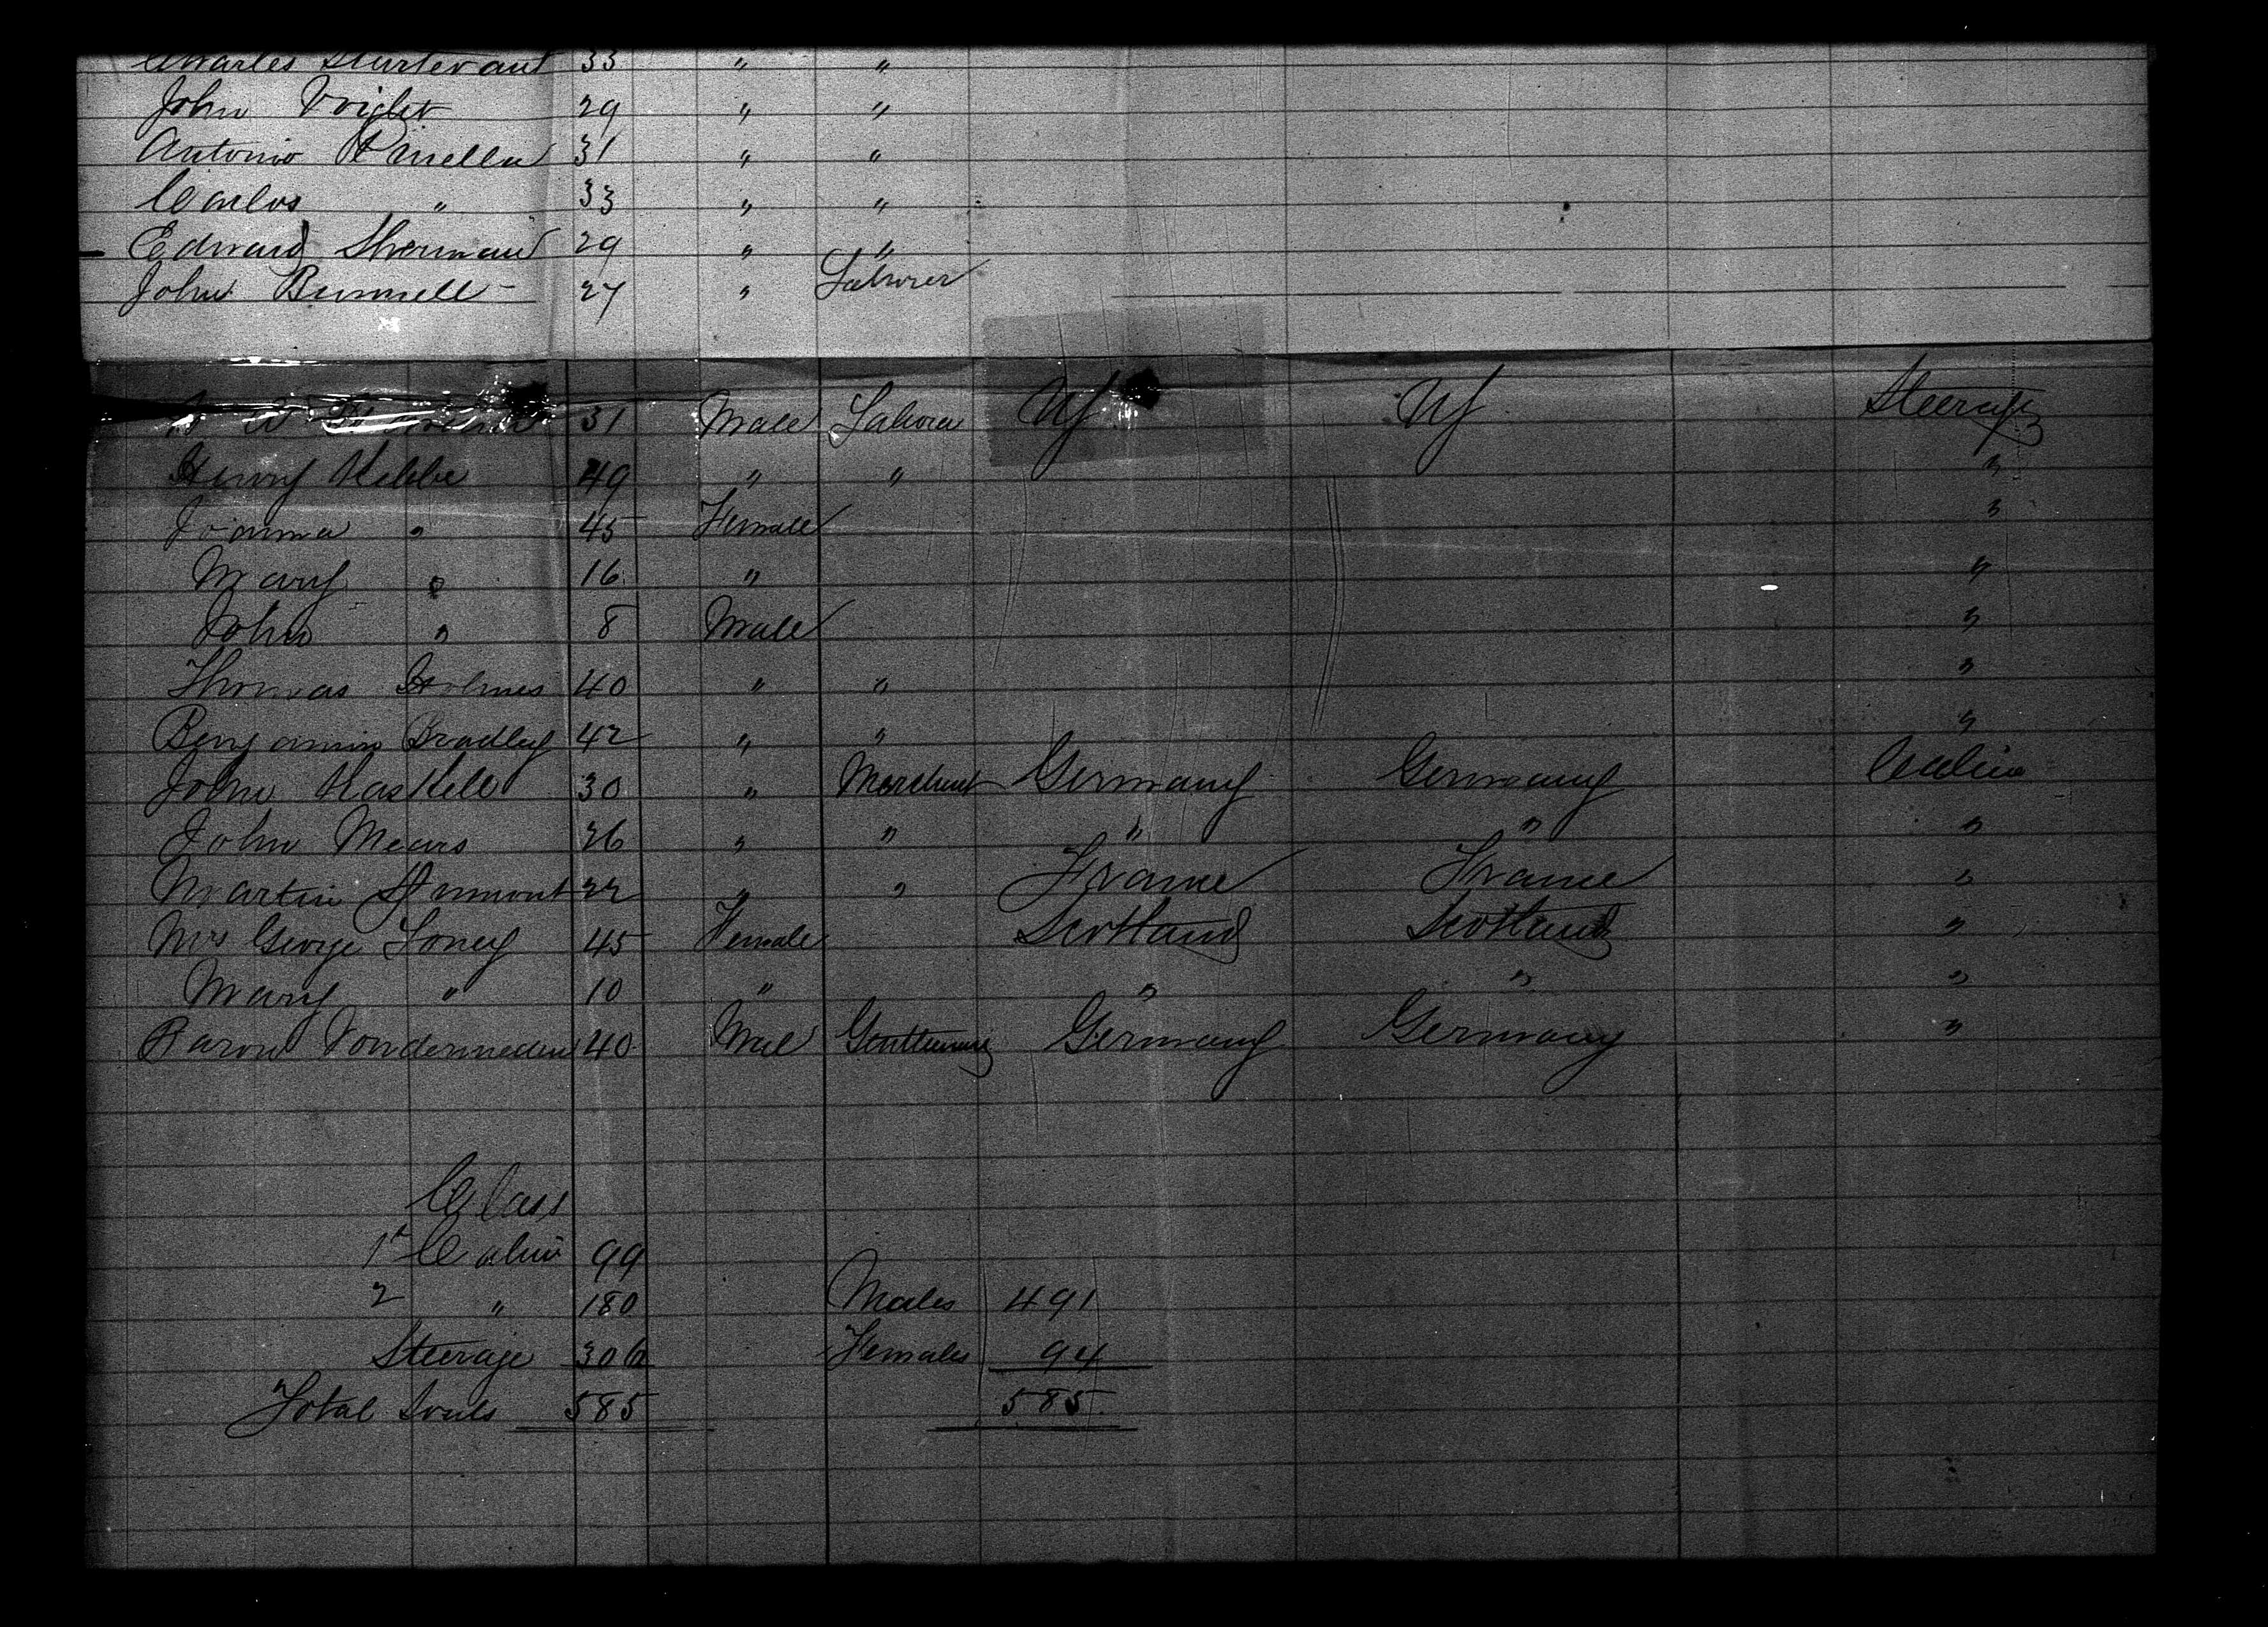 Charles Sturtevant 33 " "
John Voight 29 " "
Antonio 31 " "
Carlos " 33 " "
Edward Sherman 29 " "
John Bunnell 27 " Laborer
31 Male Labora US US Steerage
Henry Kebbe 49 " " "
Joanna " 45 Female "
Mary " 16 " "
John " 8 Male "
Thomas Holmes 40 " " "
Benjamin Bradley 42 " " "
John Haskell 30 " Merchant Germany Germany Cabin
John Mears 26 " " " " "
Martin 22 " " France France "
Mrs George Loney 45 Female Scotland Scotland "
Mary " 10 " " " "
Baron Vondermeden 40 Male Gentleman Germany Germany "
Class
1st Cabin 99
2 " 180 Males 491
Steerage 306 Females 94
Total Souls 585 585